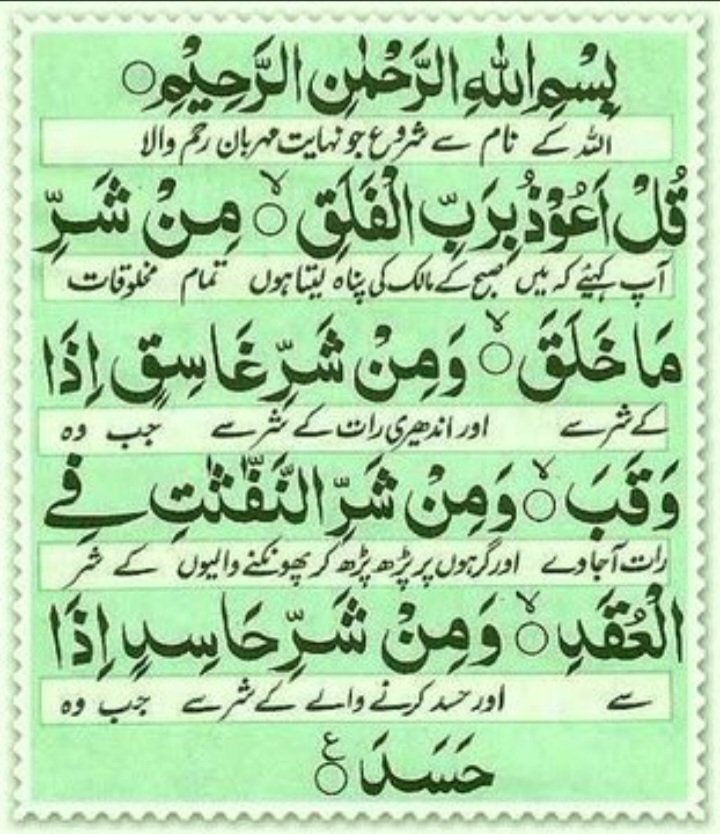 بِسْمِ اللّٰهِ الرَّحْمٰنِ الرَّحِيْمِ ○
اللہ کے نام سے شروع جو نہایت مہربان رحم والا
قُلْ اَعُوْذُ بِرَبِّ الْفَلَقِ ○ۙ مِنْ شَرِّ
آپ کہیئے کہ میں صبح کے مالک کی پناہ لیتا ہوں تمام مخلوقات
مَا خَلَقَ ○ۙ وَمِنْ شَرِّ غَاسِقٍ اِذَا
کے شر سے اور اندھیری رات کے شر سے جب وہ
وَقَبَ ○ۙ وَمِنْ شَرِّ النَّفّٰثٰتِ فِے
رات آجاوے اور گرہوں پر پڑھ پڑھ کر پھونکنے والیوں کے شر
الْعُقَدِ ○ۙ وَمِنْ شَرِّ حَاسِدٍ اِذَا
سے اور حسد کرنے والے کے شر سے جب وہ
حَسَدَ ○ع